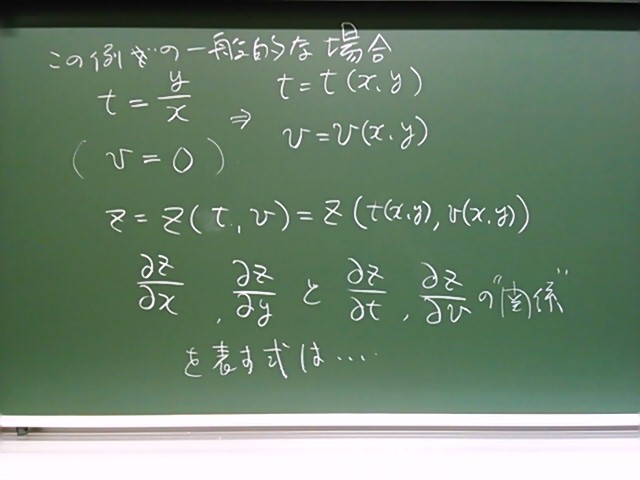 この例での一般的な場合
t = y/x ⇒ t = t(x,y)
(v = 0) v = v(x,y)
z = z(t,v) = z(t(x,y), v(x,y))
∂z/∂x , ∂z/∂y と ∂z/∂t , ∂z/∂v の"関係"
を表す式は・・・・